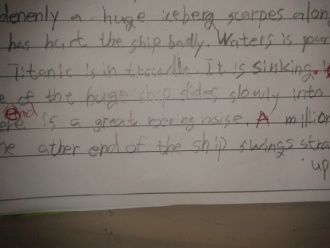 denenly a huge iceberg scarpes alon
has hurt the ship badly. Waters is pour
Titanic is in trouble. It is sinking.
e of the huge ship slides slowly into
end
ere is a great roring noise. A million
he ather end of the ship swings stra
up